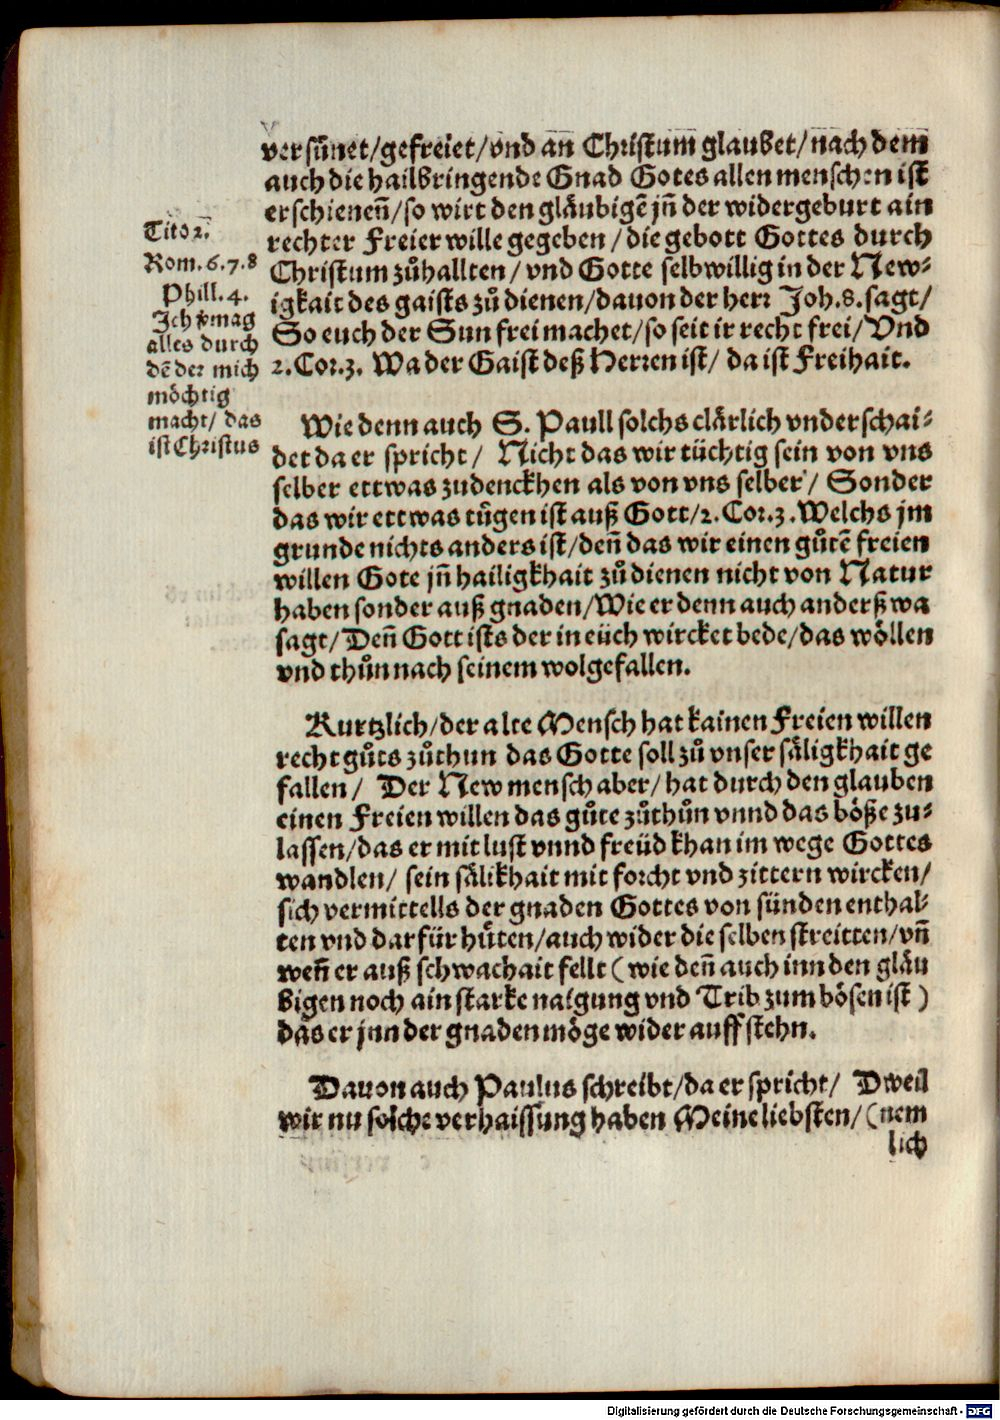 versünet/gefreiet/vnd an Christum glaubet/nach dem
auch die hailbringende Gnad Gotes allen menschen ist
erschienen̄/so wirt den gläubigē jn̄ der widergeburt ain
rechter Freier wille gegeben/die gebott Gottes durch
Christum zůhallten/vnd Gotte selbwillig in der New⸗
igkait des gaists zů dienen/dauon der herr Joh.8.sagt/
So euch der Sun frei machet/so seit ir recht frei/Vnd
2.Cor.3. Wa der Gaist deß Herren ist/ da ist Freihait.
Tito 2.
Rom.6.7.8
Phill.4.
Jch vermag
alles durch
dē der mich
möchtig
macht/ das
ist Christus
Wie denn auch S. Paull solchs clärlich vnderschai⸗
det da er spricht/ Nicht das wir tüchtig sein von vns
selber ettwas zudenckhen als von vns selber/ Sonder
das wir ettwas tügen ist auß Gott/2.Cor.3.Welchs jm
grunde nichts anders ist/den̄ das wir einen gůtē freien
willen Gote jn̄ hailigkhait zů dienen nicht von Natur
haben sonder auß gnaden/Wie er denn auch anderß wa
sagt/Den̄ Gott ists der in eüch wircket bede/das wöllen
vnd thůn nach seinem wolgefallen.
Kurtzlich/der alte Mensch hat kainen Freien willen
recht gůts zůthun das Gotte soll zů vnser säligkhait ge
fallen/ Der New mensch aber/hat durch den glauben
einen Freien willen das gůte zůthůn vnnd das böße zu⸗
lassen/das er mit lust vnnd freüd khan im wege Gottes
wandlen/ sein sälikhait mit forcht vnd zittern wircken/
sich vermittells der gnaden Gottes von sünden enthal⸗
ten vnd darfür hůten/auch wider die selben streitten/vn̄
wen̄ er auß schwachait fellt (wie den̄ auch inn den gläu
bigen noch ain starke naigung vnd Trib zum bösen ist)
das er jnn der gnaden möge wider auff stehn.
Dauon auch Paulus schreibt/da er spricht/ Dweil
wir nu solche verhaissung haben Meine liebsten/(nem
lich
Digitalisierung gefördert durch die Deutsche Forschungsgemeinschaft - DFG